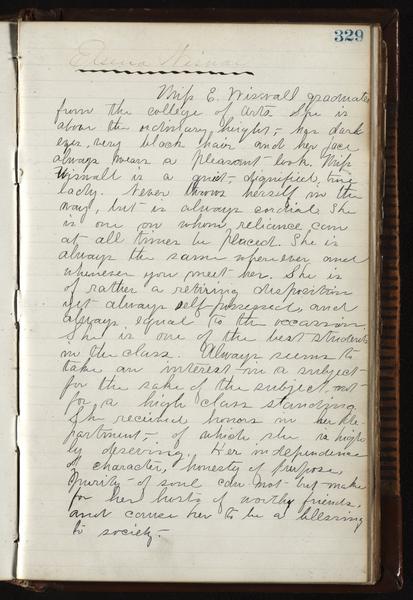 329
Miss E. Wiswall graduates
from the college of Arts She is
above the ordinary height,- has dark
eyes, very black hair and her face
always wears a pleasant look. Miss
Wiswall is a quiet, dignified, true
lady. Never throws herself in the
way, but is always cordial. She
is one on whom reliance can
at all times be placed. She is
always the same wherever and
whenever you meet her. She is
of rather a retiring disposition
yet always self-possessed, and
always equal to the occasion.
She is one of the best students
in the class. Always seems to
take an interest in a subject
for the sake of the subject, not
for a high class standing.
She received honors in her de-
partment,- of which she is high-
ly deserving. Her independence
of character, honesty of purpose,
purity of soul can not but make
for her hosts of worthy friends,
and cause her to be a blessing
to society.-